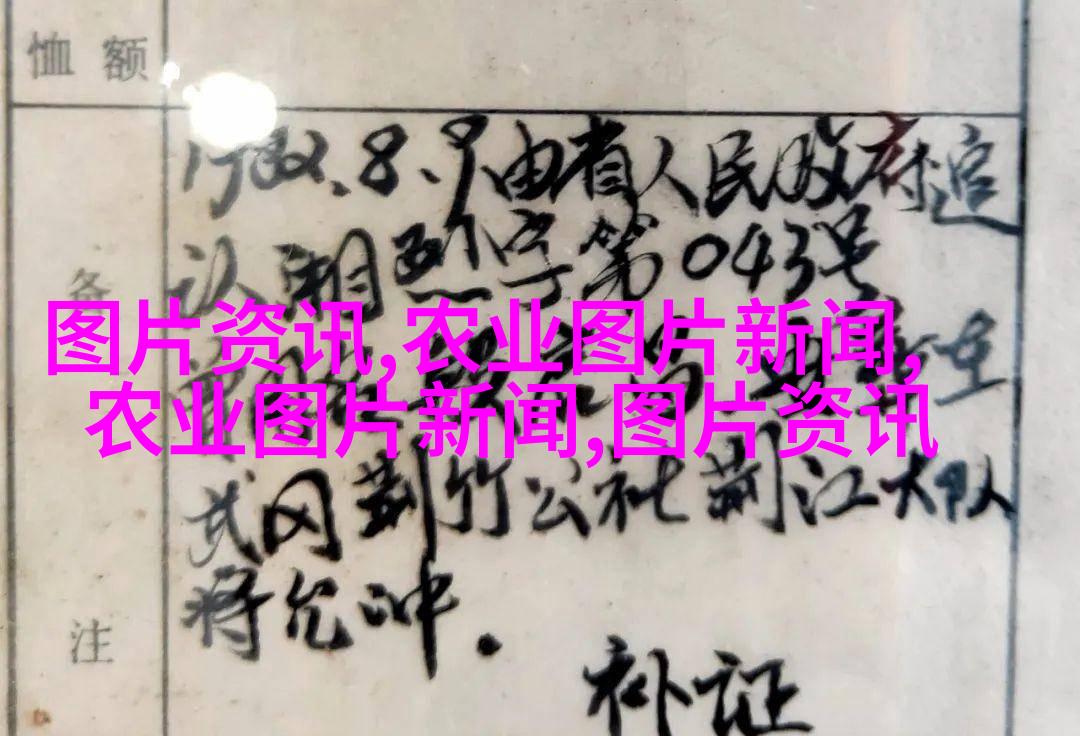 恤额
1982.8.9由省人民政府追
认湘烈字第043号
备
图片资讯,农业图片新闻,
农业图片新闻,图片资讯
武冈荆竹公社荆江大队
蒋允冲.
注
补证